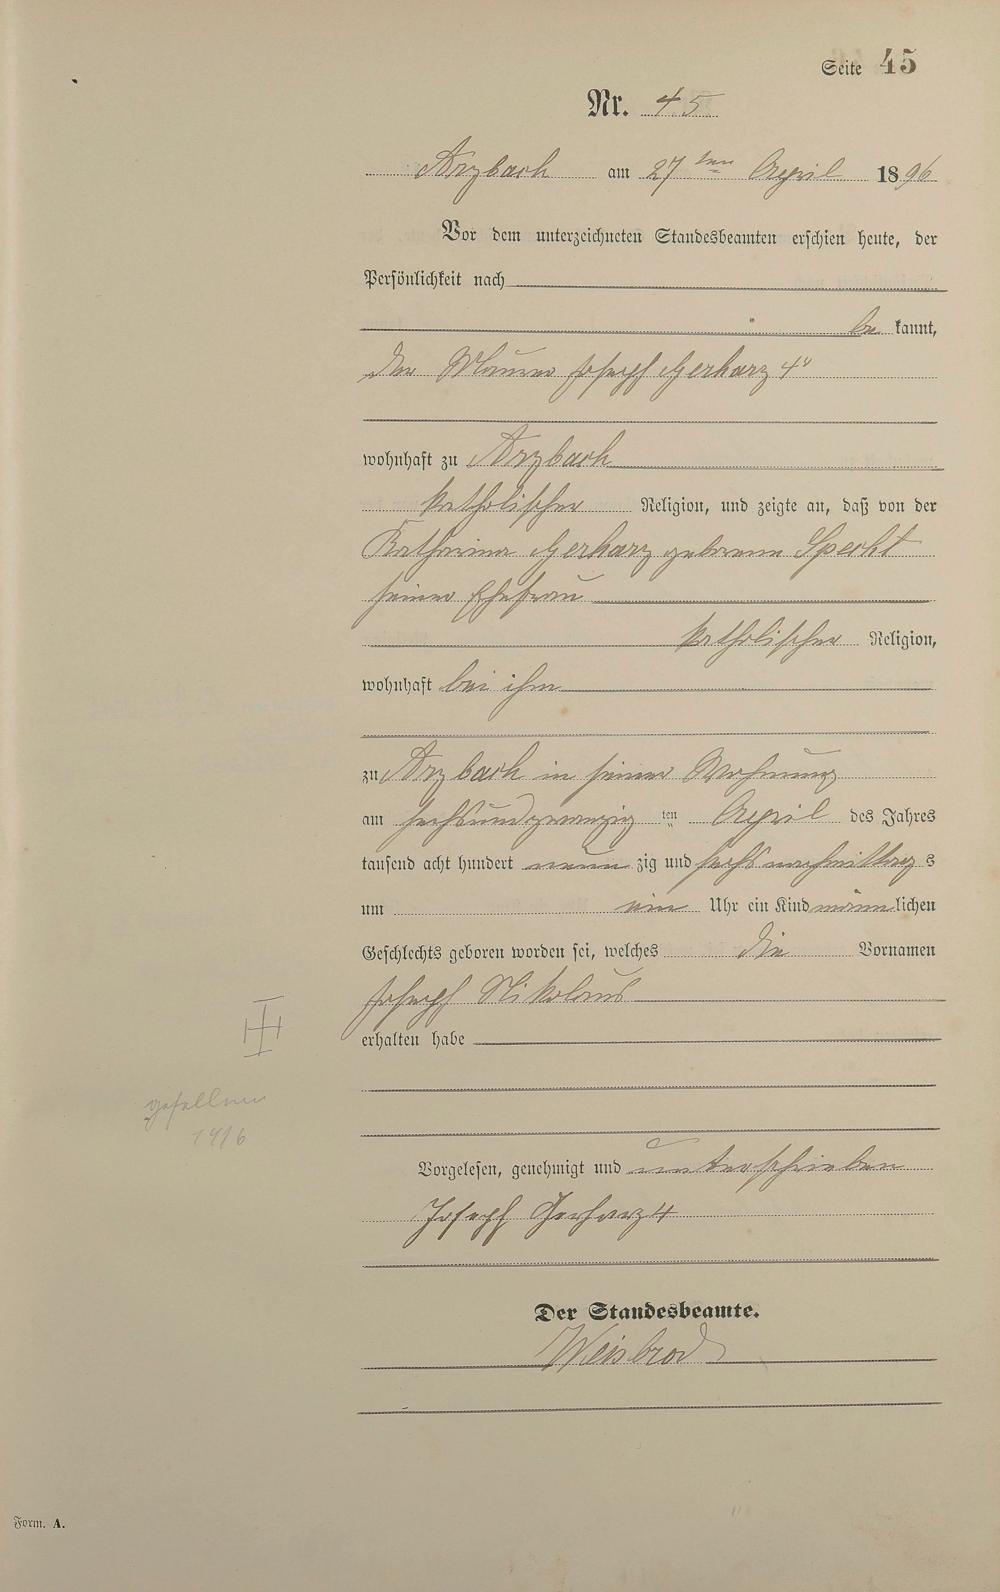 Seite 45
Nr. 45
Arzbach am 27ten April 1896
Vor dem unterzeichneten Standesbeamten erschien heute, der
Persönlichkeit nach
be kannt,
der Maurer Joseph Gerharz 4r
wohnhaft zu Arzbach
katholischer Religion, und zeigte an, daß von der
Katharina Gerharz geborene Specht
seiner Ehefrau
katholischer Religion,
wohnhaft bei ihm
zu Arzbach in seiner Wohnung
am sechsundzwanzig ten April des Jahres
tausend acht hundert neun zig und sechs nachmittag s
um ein Uhr ein Kind männlichen
Geschlechts geboren worden sei, welches die Vornamen
Joseph Nikolaus
erhalten habe
gefallen
1916
Vorgelesen, genehmigt und unterschrieben
Joseph Gerharz 4
Der Standesbeamte.
Weisbrod
Form. A.